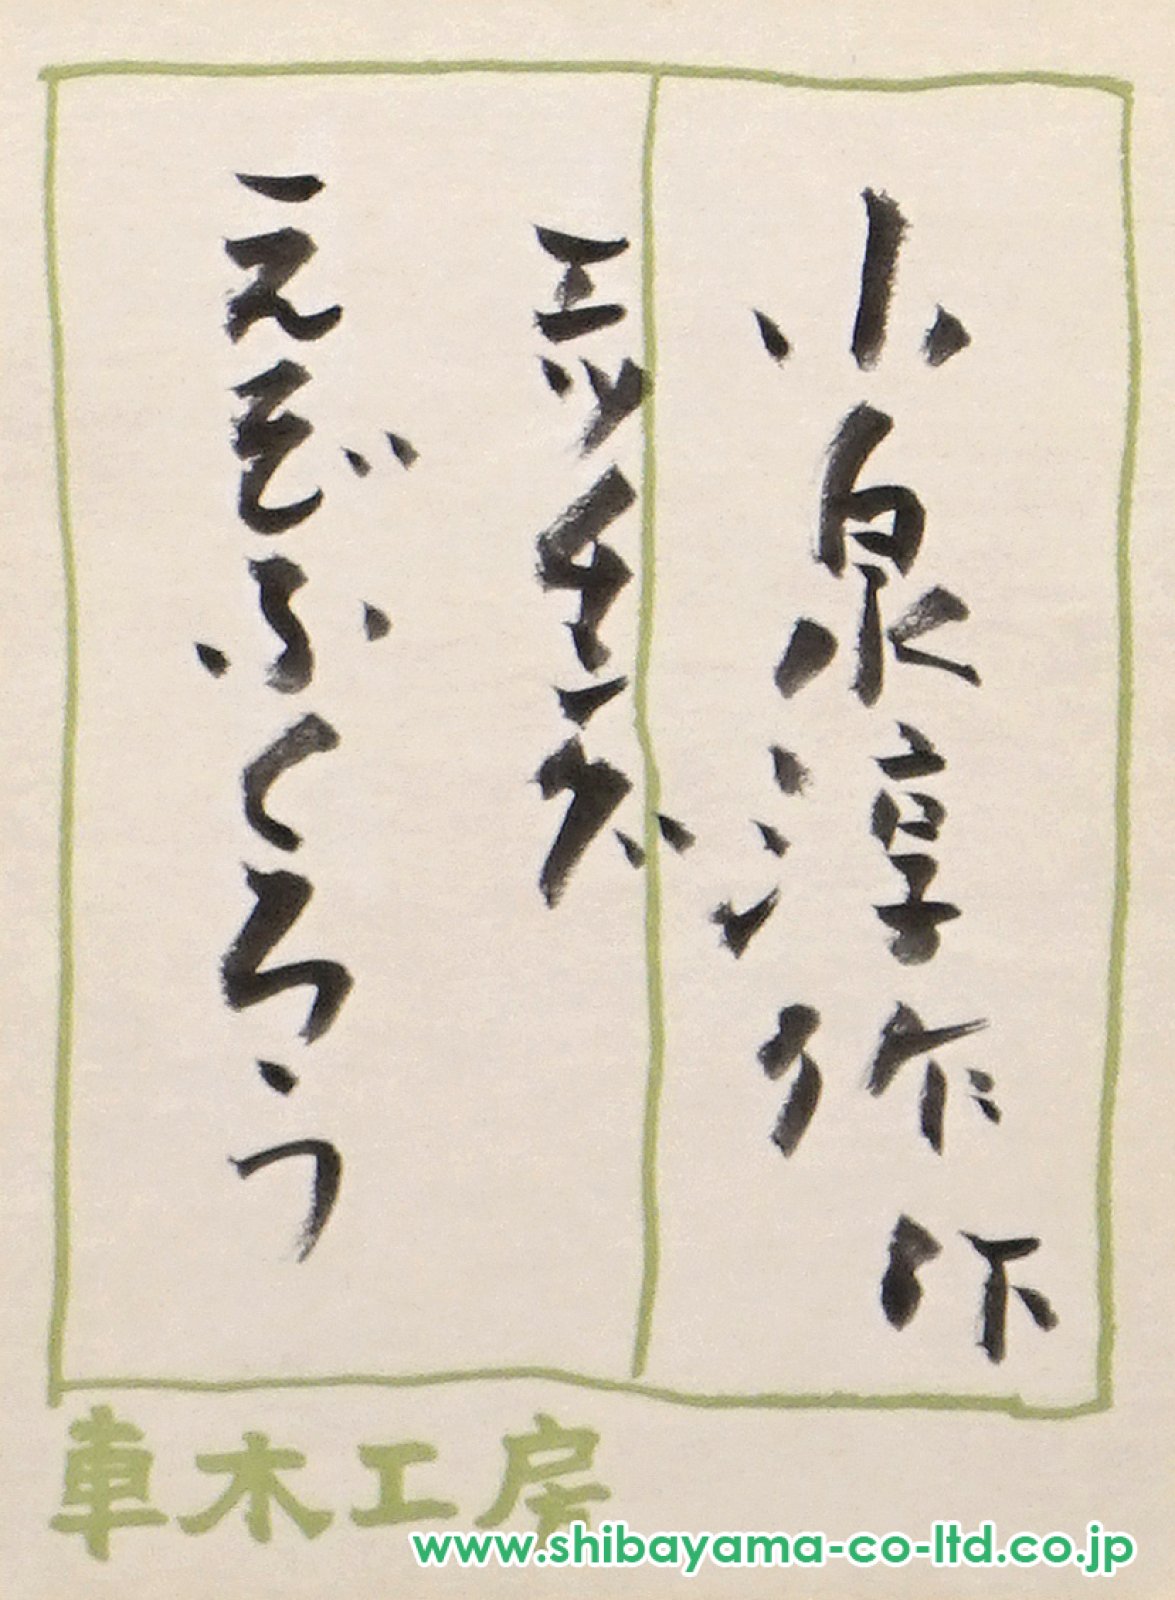 小泉淳作 作
えぞふくろう
車木工房
www.shibayama-co-ltd.co.jp